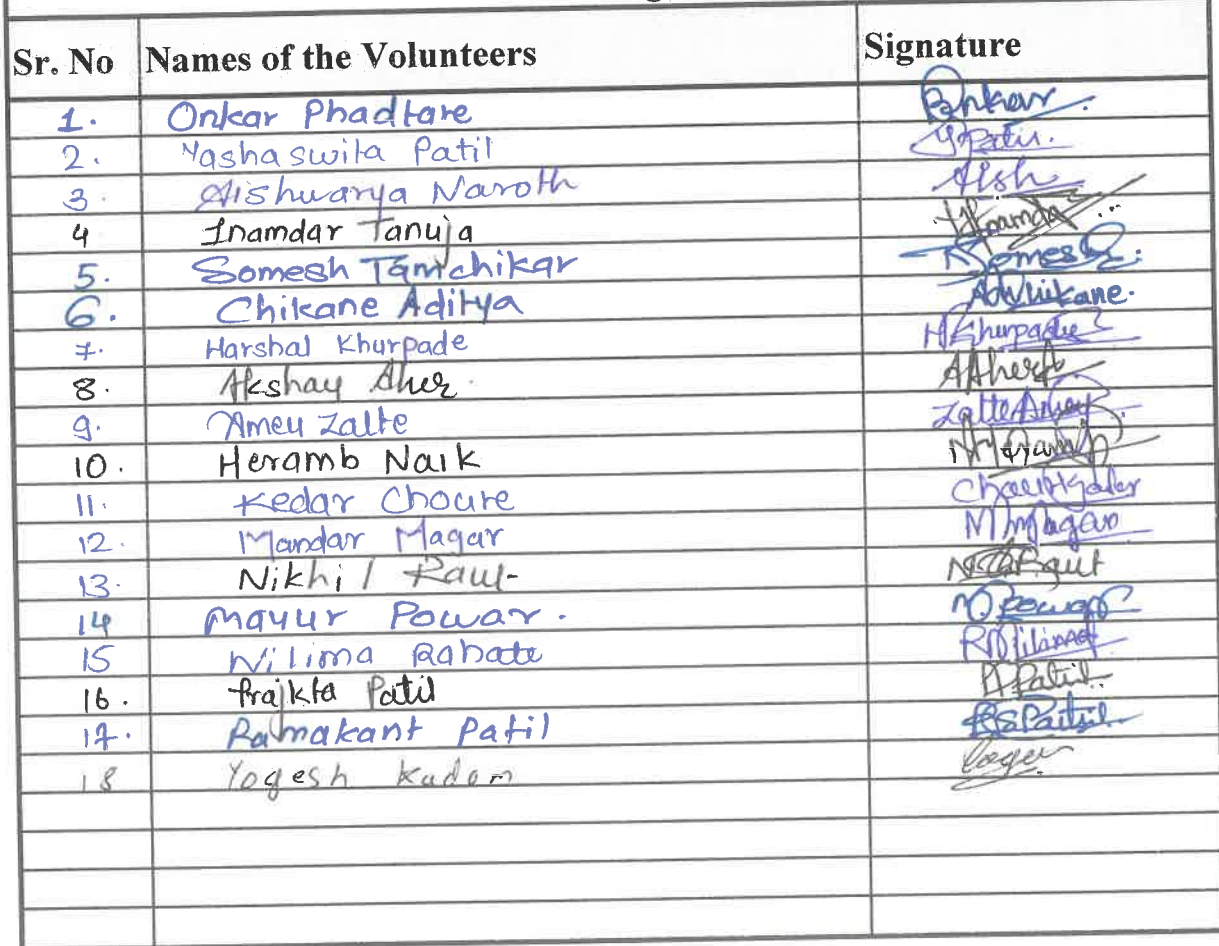 Sr. No Names of the Volunteers Signature
1. Onkar Phadtare Onkar
2. Yashaswita Patil YPatil.
3. Aishwarya Naroth Aish
4 Inamdar Tanuja Inamdar
5. Somesh Tamchikar Somesh
6. Chikane Aditya Chikane.
7. Harshal Khurpade HKhurpade
8. Akshay Aher. AAher
9. Amey Zalte Zalte Amey
10. Heramb Naik
11. Kedar Choure
12. Mandar Magar Magar
13. Nikhil Raut Raut
14 Mayur Powar. Powar
15 Nilima Rahate
16. Prajkta Patil Patil
17. Ramakant Patil RSPatil
18 Yogesh Kadam